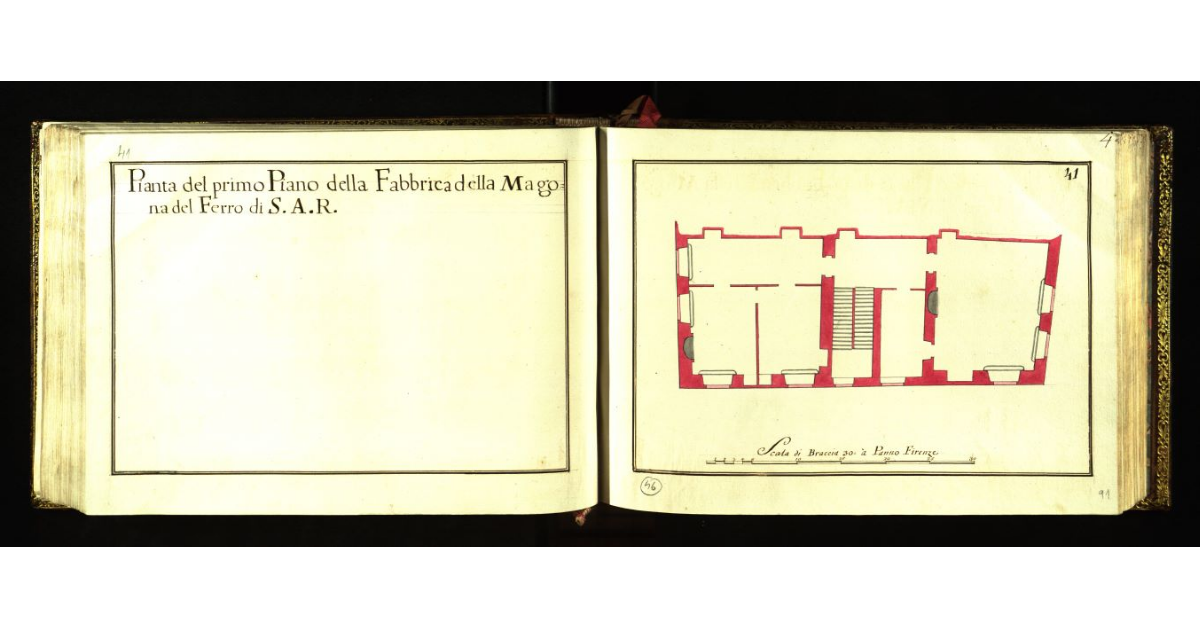 41
Pianta del primo Piano della Fabbrica della Mago=
na del Ferro di S.A.R.
41
Scala di Braccia 30. à Panno Firenze.
46
91